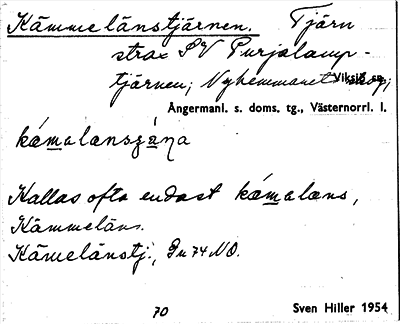 Kämmelänstjärnen. Tjärn
strax SV Purjolamp-
tjärnen; Nyhemmanet Viksjö sn
Ångermanl. s. doms. tg., Västernorrl. l.
Kallas ofta endast kǽmalæns,
Kämmeläns.
Kämelänstj., Gn 74 NO.
70
Sven Hiller 1954